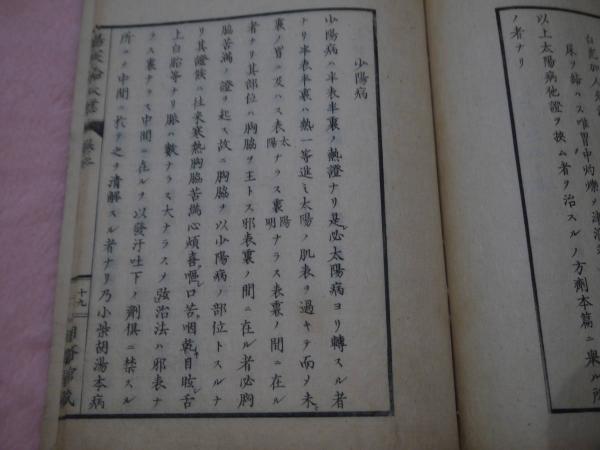 白虎加人
以上太陽病他證ヲ挾ム者ヲ治スルノ方劑本篇ニ舉ル所
ノ者ナリ
少陽病
少陽病ハ半表半裏ノ熱證ナリ是必太陽病ヨリ轉スル者
ナリ半表半裏ハ熱一等進ミ太陽ノ肌表ヲ過キテ而メ未
裏ノ胃ニ及ハス表太陽ナラス裏陽明ナラス表裏ノ間ニ在ル
者ナリ其部位ハ胸脇ヲ主トス邪表裏ノ間ニ在ル者必胸
脇苦滿ノ證ヲ起ス故ニ胸脇ヲ以少陽病ノ部位トスルナ
リ其證候ハ往來寒熱胸脇苦滿心煩喜嘔口苦咽乾目眩舌
上白胎等ナリ脈ハ數ナラス大ナラスメ弦治法ハ邪表ナ
ラス裏ナラス中間ニ在ルヲ以發汗吐下ノ劑俱ニ禁スル
所ニメ中間ニ於テ之ヲ清解スル者ナリ乃小柴胡湯本病
十九